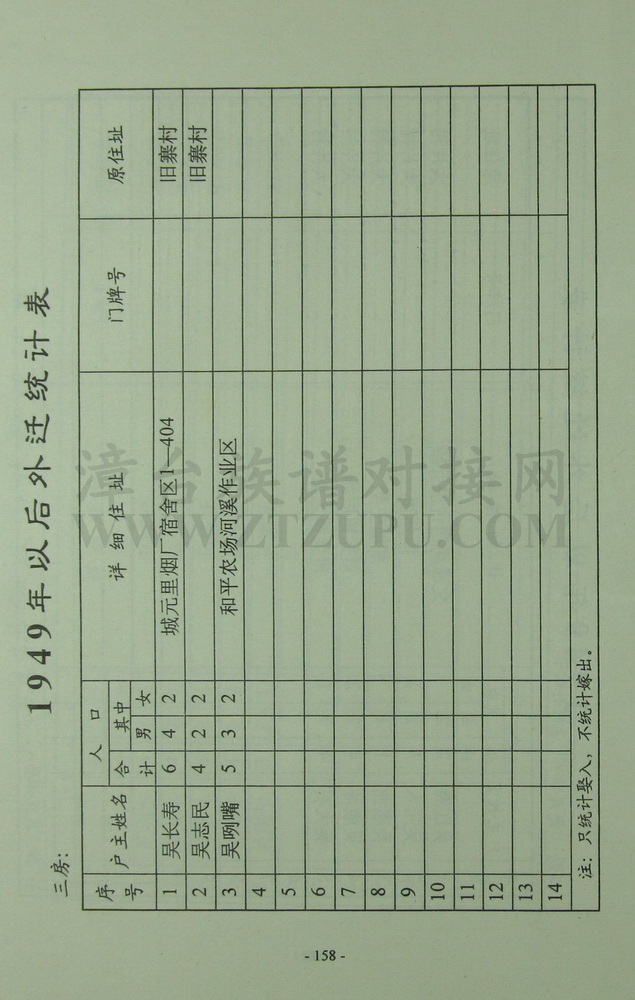 1949年以后外迁统计表
三房：
序号 户主姓名 人口 详细住址 门牌号 原住址
合计 其中
男 女
1 吴长寿 6 4 2 城元里烟厂宿舍区1—404 旧寨村
2 吴志民 4 2 2 旧寨村
3 吴咧嘴 5 3 2 和平农场河溪作业区
4
5
6
7
8
9
10
11
12
13
14
注：只统计娶入，不统计嫁出。
- 158 -
漳台族谱对接网
WWW.ZTZUPU.COM